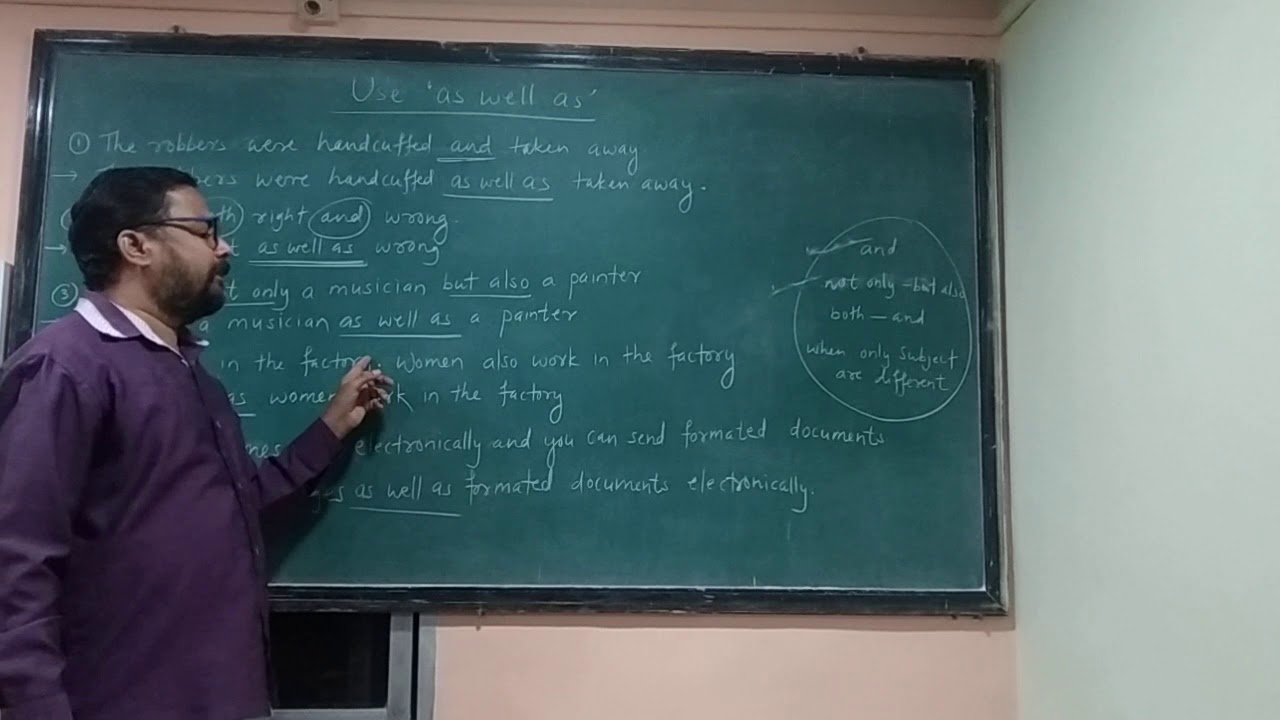 Use 'as well as'
① The robbers were handcuffed and taken away
→ were handcuffed as well as taken away.
right and wrong.
→ as well as wrong
③ only a musician but also a painter
a musician as well as a painter
in the factory. Women also work in the factory
as women work in the factory
electronically and you can send formated documents
as well as formated documents electronically.
and
not only - but also
both — and
when only subject
are different